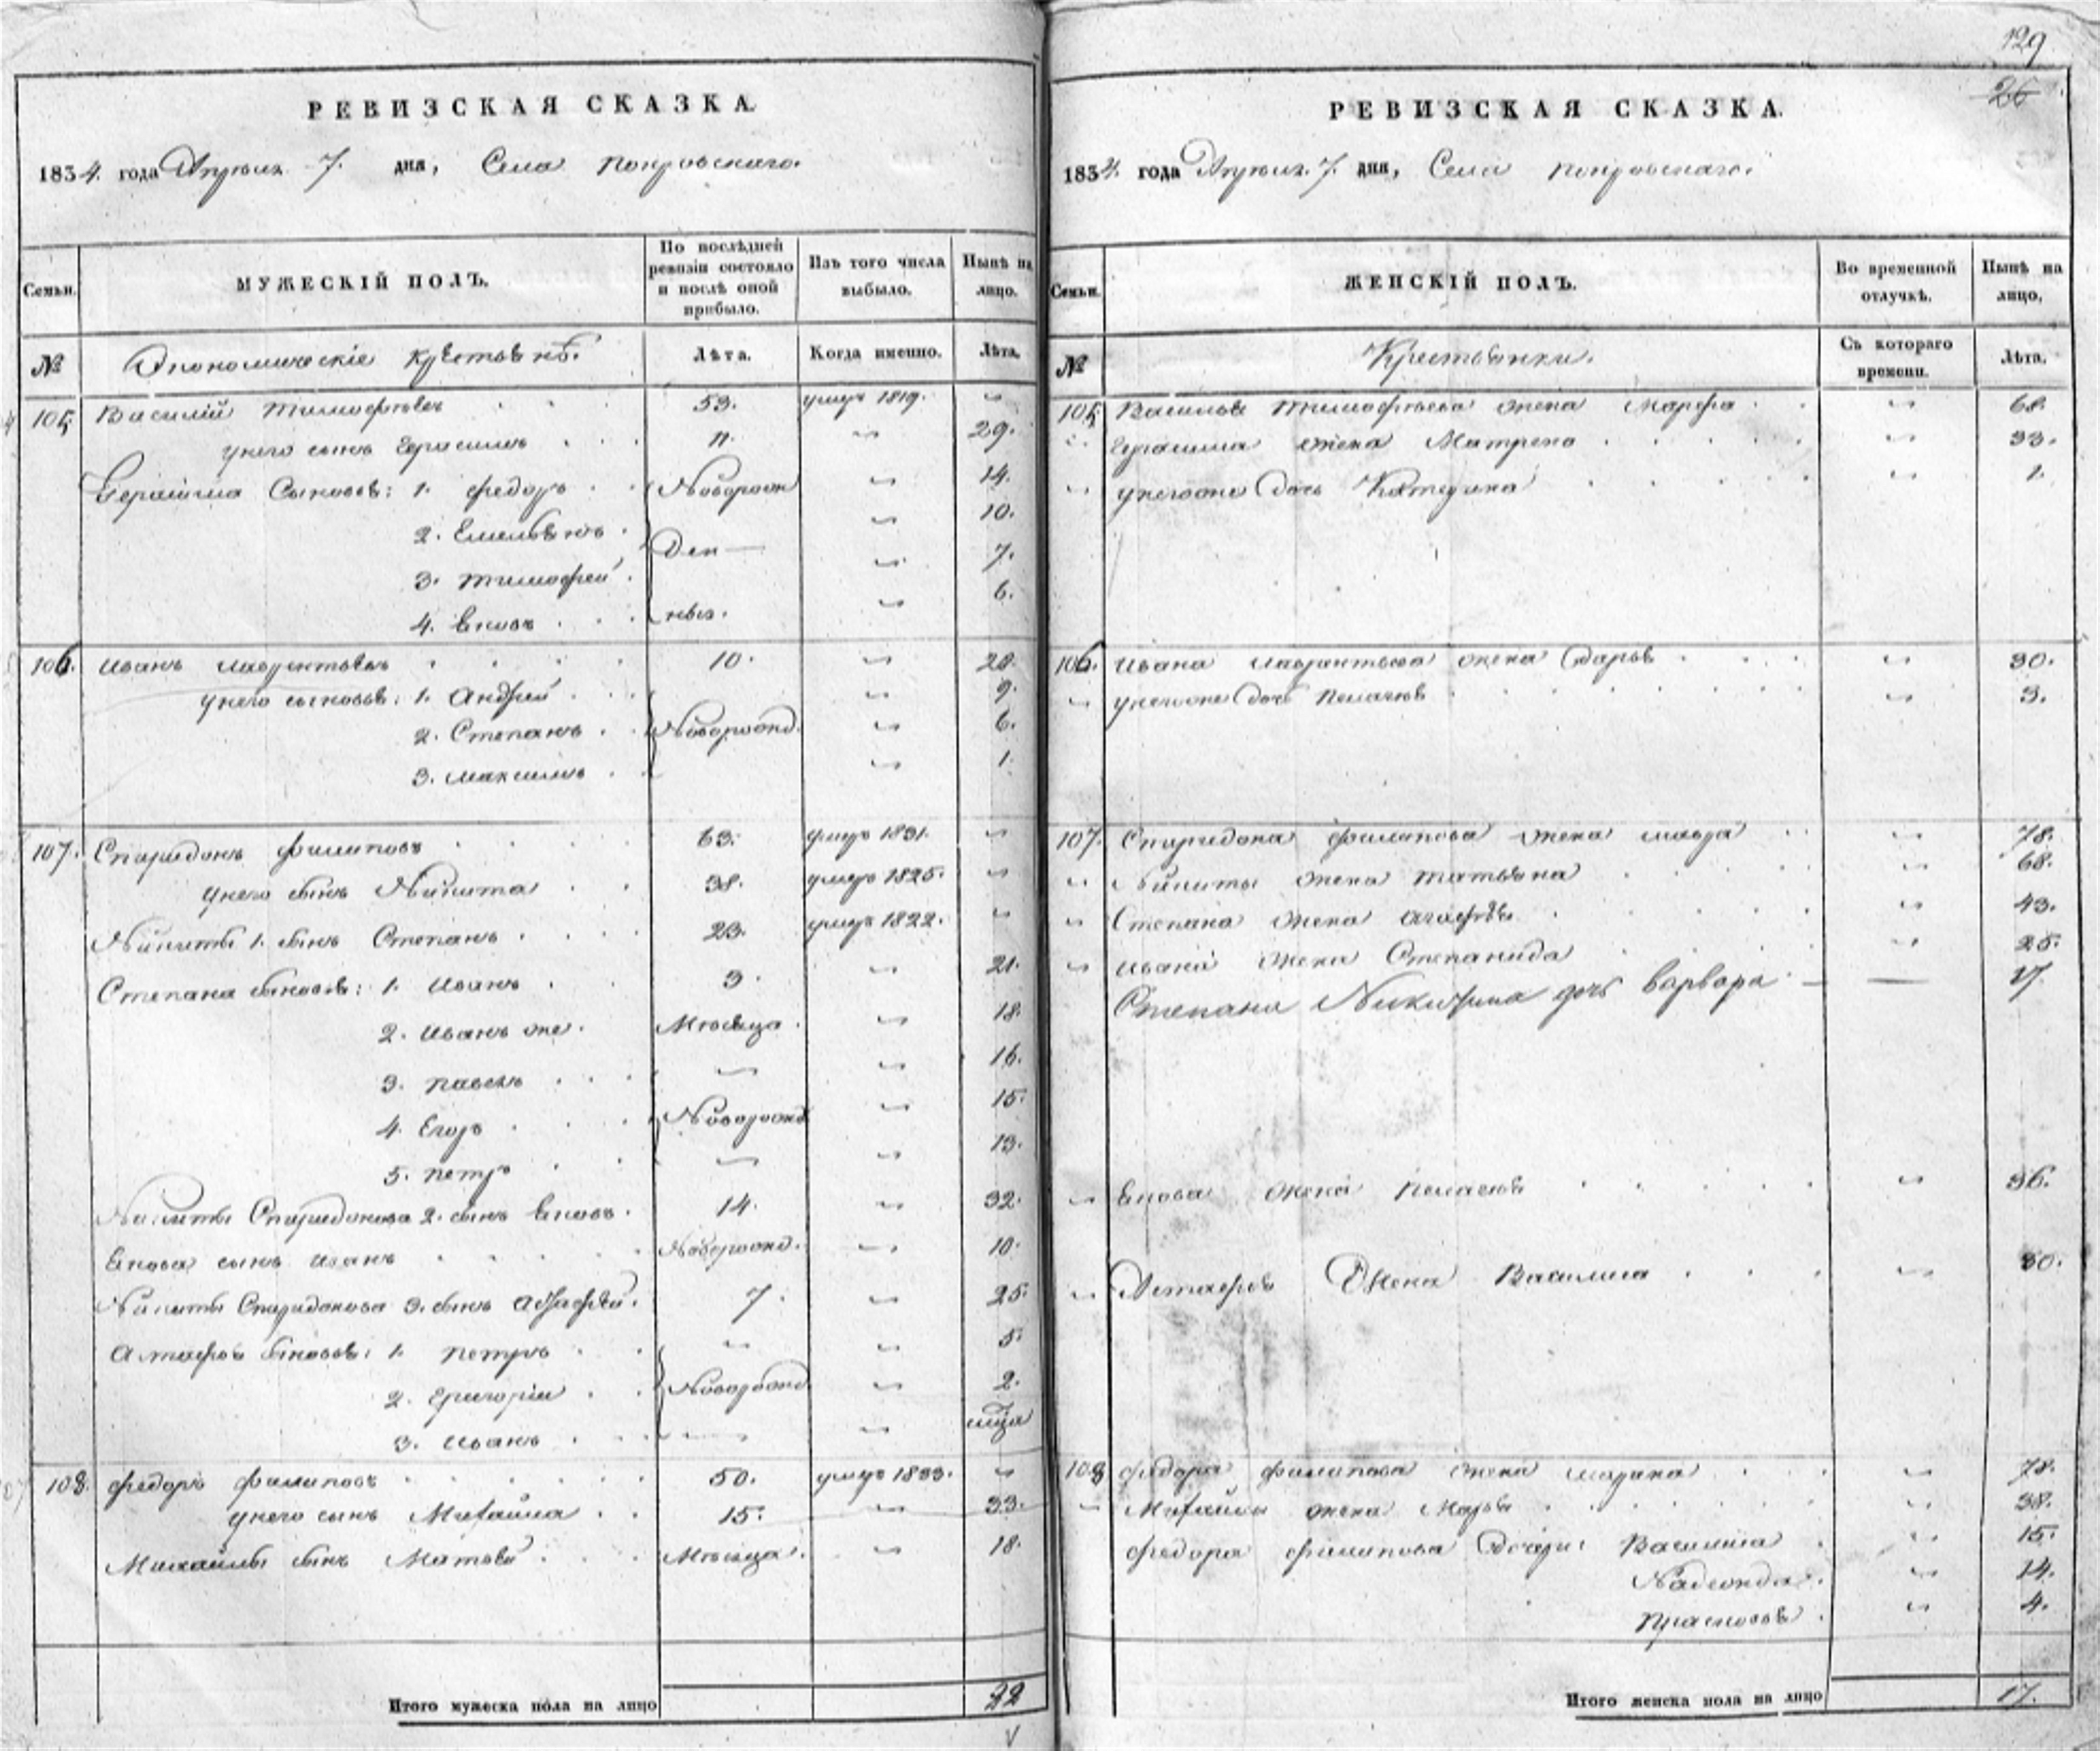 129
26
РЕВИЗСКАЯ СКАЗКА.
1834. года Апреля 7. дня, Села Покровскаго.
Семьи.
МУЖЕСКІЙ ПОЛЪ.
По послѣдней ревизіи состояло и послѣ оной прибыло.
Изъ того числа выбыло.
Нынѣ на лицо.
№
Экономическіе крестьянѣ.
Лѣта.
Когда именно.
Лѣта.
105 Василій Тимофѣевъ 53. умеръ 1819. "
у него сынъ Герасимъ 11. " 29.
Герасима сыновья: 1. Федоръ Новорож " 14.
2. Емельянъ " 10.
3. Тимофей ден " 7.
4. Яковъ ныя. " 6.
106. Иванъ Лаврентьевъ 10. " 28.
у него сыновья: 1. Андрей " 9.
2. Степанъ Новорожд. " 6.
3. Максимъ " 1.
107. Спиридонъ Филиповъ 63. умеръ 1831. "
у него сынъ Никита 38. умеръ 1825. "
Никиты 1. сынъ Степанъ 23. умеръ 1822. "
Степана сыновья: 1. Иванъ 3. " 21.
2. Иванъ же. Мѣсяца. " 18.
3. Павелъ " 16.
4. Егоръ Новорожд " 15.
5. Петръ " 13.
Никиты Спиридонова 2. сынъ Яковъ. 14. " 32.
Якова сынъ Иванъ Новорожд. " 10.
Никиты Спиридонова 3. сынъ Астафѣй. 7. " 25.
Астафья сыновья: 1. Петръ " " 5.
2. Григорій Новорожд " 2.
3. Иванъ " мца
108. Федоръ Филиповъ 50. умеръ 1833. "
у него сынъ Михайла 15. " 33.
Михайлы сынъ Матвѣй Мѣсяца. " 18.
Итого мужеска пола на лицо 22
РЕВИЗСКАЯ СКАЗКА.
1834. года Апреля. 7. дня, Села Покровскаго.
Семьи.
ЖЕНСКІЙ ПОЛЪ.
Во временной отлучкѣ.
Нынѣ на лицо.
№
Крестьянки.
Съ котораго времени.
Лѣта.
105 Василья Тимофѣева жена Марфа " 68.
" Герасима жена Матрена " 33.
" у него же дочь Катерина " 1.
106. Ивана Лаврентьева жена Дарья " 30.
" у него же дочь Пелагея " 3.
107. Спиридона Филипова жена Мавра " 78.
" Никиты жена Татьяна " 68.
" Степана жена Агафья " 43.
" Ивана жена Степанида " 25.
Степана Никитина дочь Варвара — 17.
" Якова жена Пелагея " 36.
" Астафья Жена Василиса " 30.
108 Федора Филипова жена Марина " 78.
" Михайлы жена Марья " 38.
Федора Филипова дочери: Василиса " 15.
Надежда. " 14.
Прасковья. " 4.
Итого женска пола на лицо 17.